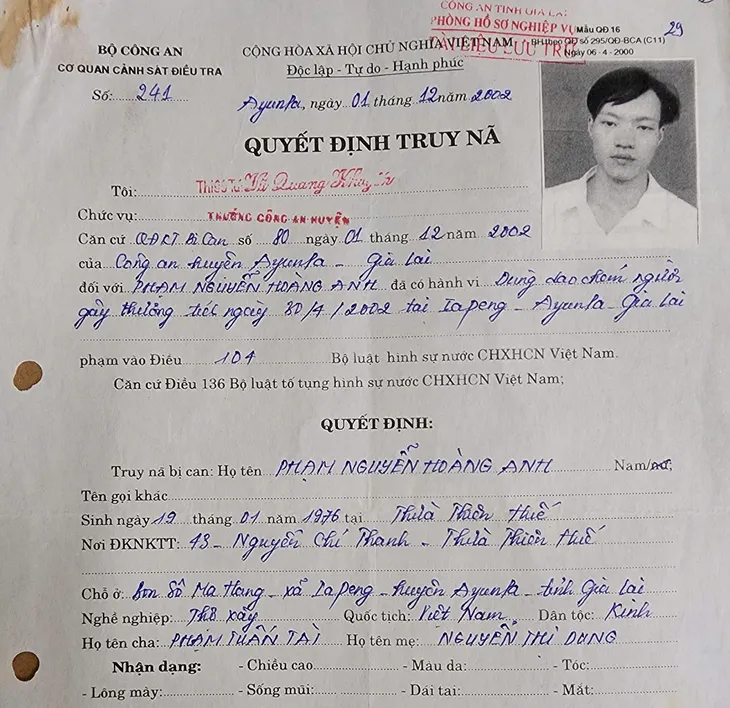 CÔNG AN TỈNH GIA LAI
PHÒNG HỒ SƠ NGHIỆP VỤ
TÀI LIỆU LƯU TRỮ
Mẫu QĐ 16
BH theo QĐ số 295/QĐ-BCA (C11)
Ngày 06 - 4 - 2000
29
BỘ CÔNG AN
CƠ QUAN CẢNH SÁT ĐIỀU TRA
Số: 241
CỘNG HÒA XÃ HỘI CHỦ NGHĨA VIỆT NAM
Độc lập - Tự do - Hạnh phúc
AyunPa, ngày 01 tháng 12 năm 2002
QUYẾT ĐỊNH TRUY NÃ
Tôi: THIẾU TÁ Vũ Quang
Chức vụ: TRƯỞNG CÔNG AN HUYỆN
Căn cứ QĐKT Bị Can số 80 ngày 01 tháng 12 năm 2002
của Công an huyện AyunPa - Gia Lai
đối với PHẠM NGUYỄN HOÀNG ANH đã có hành vi Dùng dao chém người
gây thương tích ngày 30/4/2002 tại IaPeng - AyunPa - Gia Lai
phạm vào Điều 104 Bộ luật hình sự nước CHXHCN Việt Nam.
Căn cứ Điều 136 Bộ luật tố tụng hình sự nước CHXHCN Việt Nam;
QUYẾT ĐỊNH:
Truy nã bị can: Họ tên PHẠM NGUYỄN HOÀNG ANH Nam/nữ;
Tên gọi khác
Sinh ngày 19 tháng 01 năm 1976 tại Thừa Thiên Huế
Nơi ĐKNKTT: 43 - Nguyễn Chí Thanh - Thừa Thiên Huế
Chỗ ở: Bon Sô Ma Hang - xã IaPeng - huyện AyunPa - tỉnh Gia Lai
Nghề nghiệp: Thợ xây Quốc tịch: Việt Nam Dân tộc: Kinh
Họ tên cha: PHẠM TUẤN TÀI Họ tên mẹ: NGUYỄN THỊ DUNG
Nhận dạng: - Chiều cao - Màu da: - Tóc:
- Lông mày: - Sống mũi: - Dái tai: - Mắt: